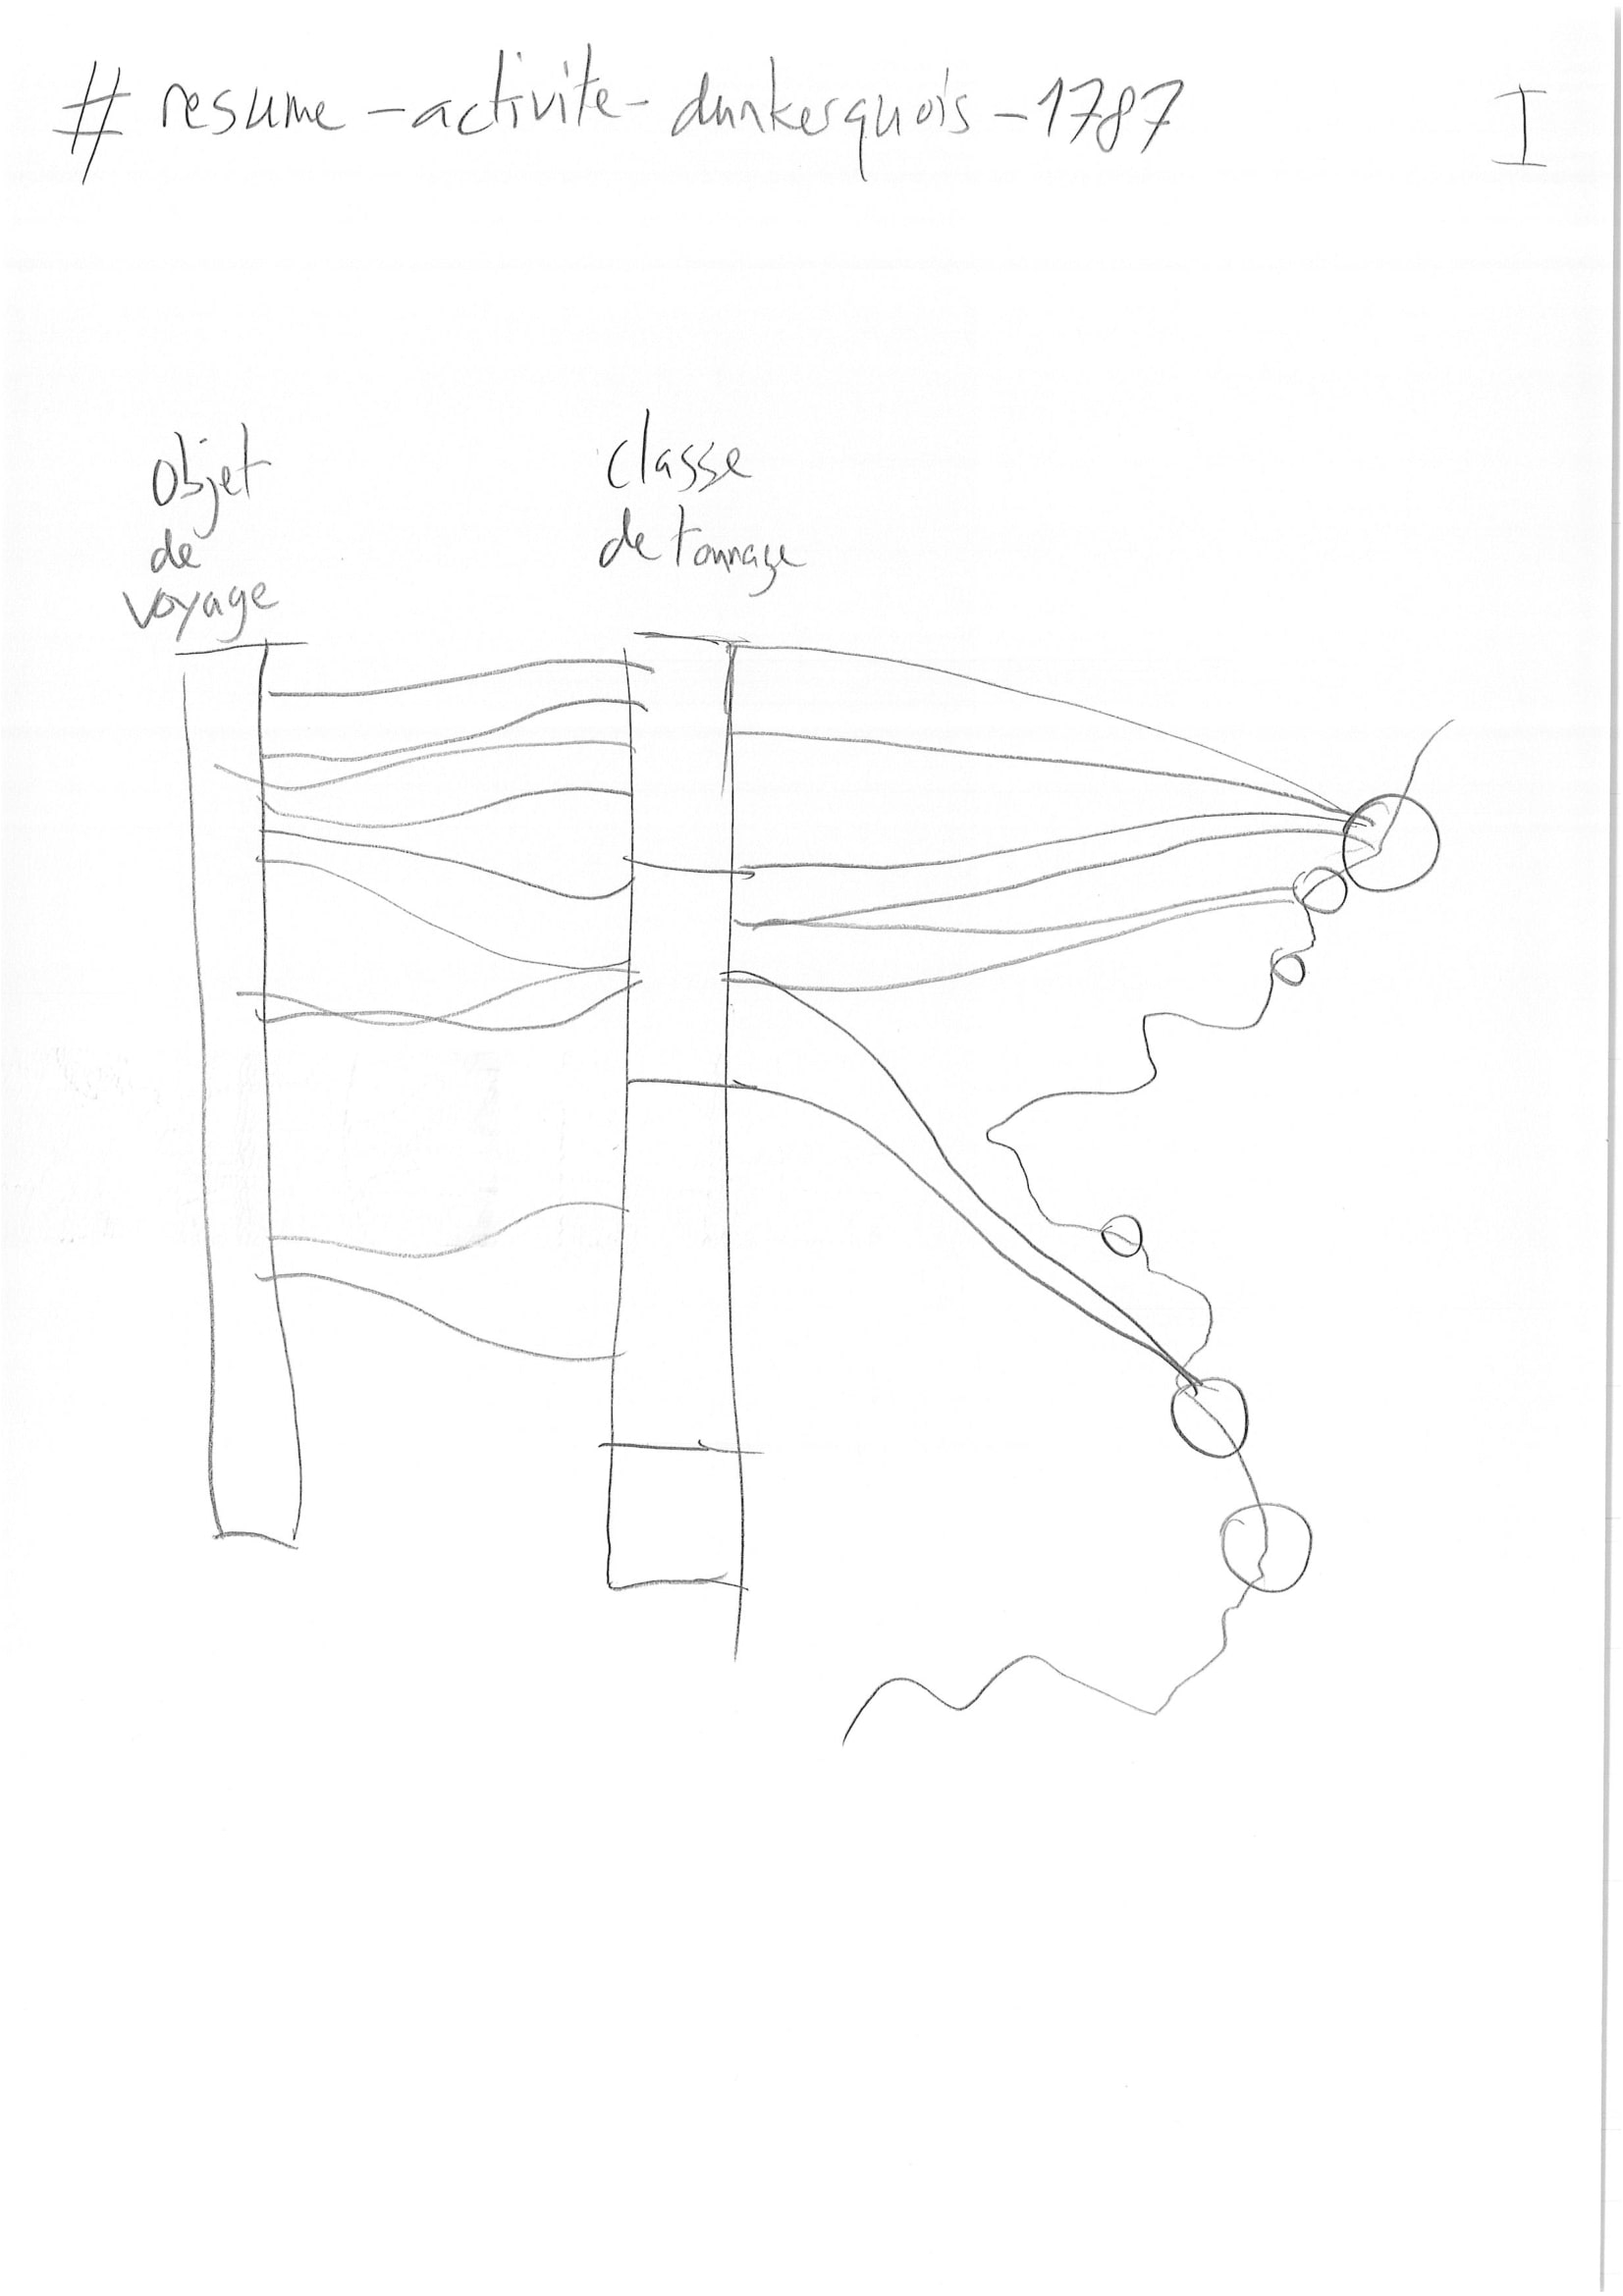 # resume-activite-dunkerquois-1787 I
Objet
de
voyage
classe
de tonnage